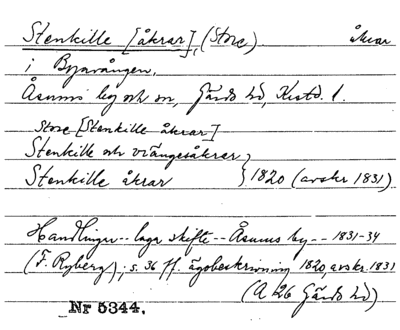 Stenkille [åkrar], (Store) åkrar
i Byavången,
Åsums by och sn, Gärds hd, Kristd. l.
Store [Stenkille åkrar]
Stenkille och vrångesåkrar }
Stenkille åkrar } 1820 (avskr 1831)
Handlingar -- laga skifte -- Åsums by -- 1831-34
(F. Ryberg); s. 36 ff. ägobeskrivning 1820, avskr. 1831
(A 26 Gärds hd)
Nr 5344.